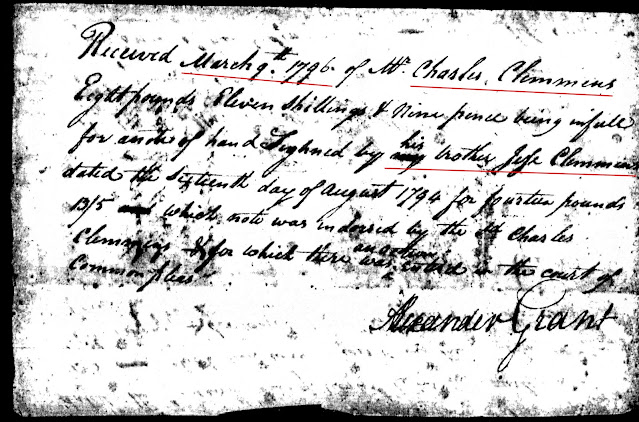 Received March 9th. 1796. of Mr. Charles Clemmens
Eight pounds Eleven Shillings & Nine pence being in full
for a note of hand Sighned by his brother Jesse Clemmens
dated the Sixteenth day of August 1794 for fourteen pounds
13/5 which note was indorsed by the sd. Charles
Clemmens & for which there was an action entered in the court of
Common pleas
Alexander Grant